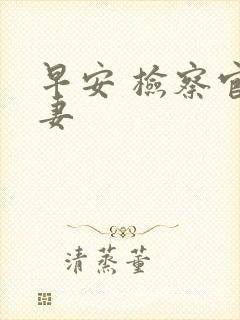 早安 檢察官
妻
清蒸董